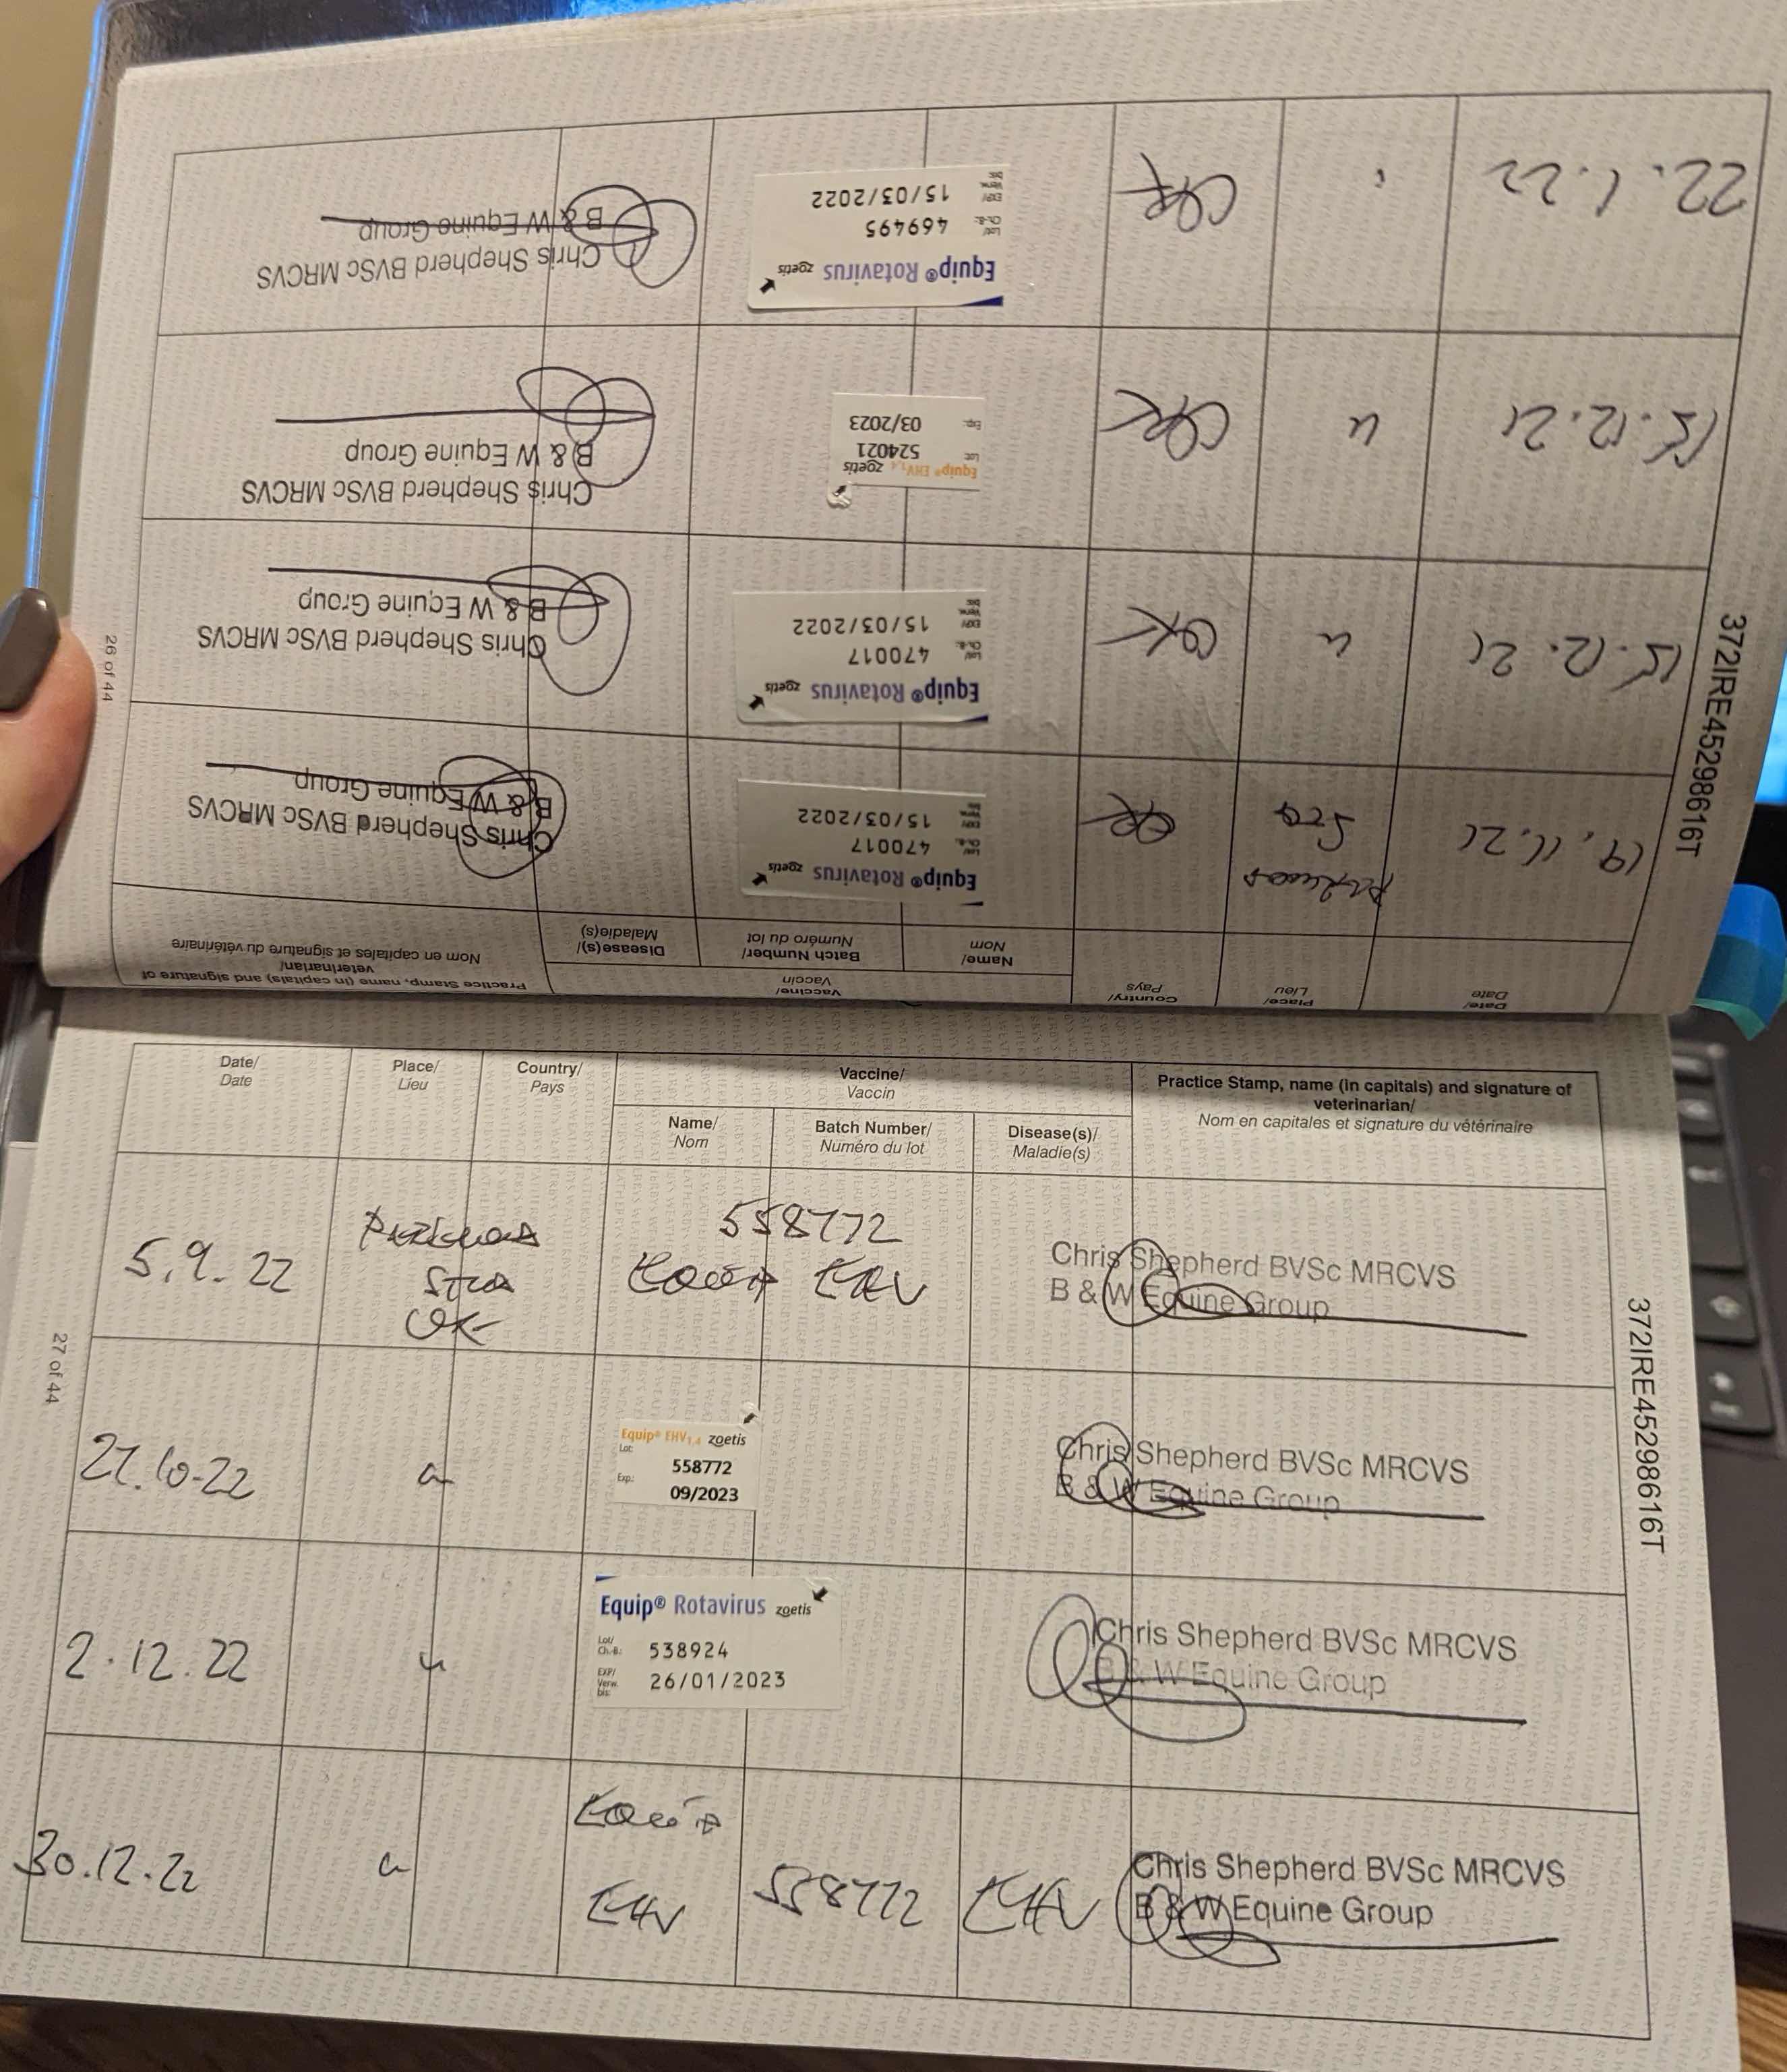 372IRE45298616T
26 of 44
Date/
Date
Place/
Lieu
Country/
Pays
Vaccine/
Vaccin
Name/
Nom
Batch Number/
Numéro du lot
Disease(s)/
Maladie(s)
Practice Stamp, name (in capitals) and signature of
veterinarian/
Nom en capitales et signature du vétérinaire
19.11.21
Stud
UK
Equip® Rotavirus zoetis
Lot/
Ch.-B.:
470017
EXP/
Verw.
bis:
15/03/2022
Chris Shepherd BVSc MRCVS
B & W Equine Group
15.12.21
"
UK
Equip® Rotavirus zoetis
Lot/
Ch.-B.:
470017
EXP/
Verw.
bis:
15/03/2022
Chris Shepherd BVSc MRCVS
B & W Equine Group
15.12.21
"
UK
Equip® EHV1,4 zoetis
Lot:
524021
Exp.:
03/2023
Chris Shepherd BVSc MRCVS
B & W Equine Group
22.1.22
"
UK
Equip® Rotavirus zoetis
Lot/
Ch.-B.:
469495
EXP/
Verw.
bis:
15/03/2022
Chris Shepherd BVSc MRCVS
B & W Equine Group
372IRE45298616T
27 of 44
Date/
Date
Place/
Lieu
Country/
Pays
Vaccine/
Vaccin
Name/
Nom
Batch Number/
Numéro du lot
Disease(s)/
Maladie(s)
Practice Stamp, name (in capitals) and signature of
veterinarian/
Nom en capitales et signature du vétérinaire
5.9.22
Stud
UK
558772
Equip EHV
Chris Shepherd BVSc MRCVS
B & W Equine Group
"
Equip® EHV1,4 zoetis
Lot:
558772
Exp.:
09/2023
Chris Shepherd BVSc MRCVS
B & W Equine Group
2.12.22
"
Equip® Rotavirus zoetis
Lot/
Ch.-B.:
538924
EXP/
Verw.
bis:
26/01/2023
Chris Shepherd BVSc MRCVS
B & W Equine Group
30.12.22
"
Equip
EHV
558772
EHV
Chris Shepherd BVSc MRCVS
B & W Equine Group